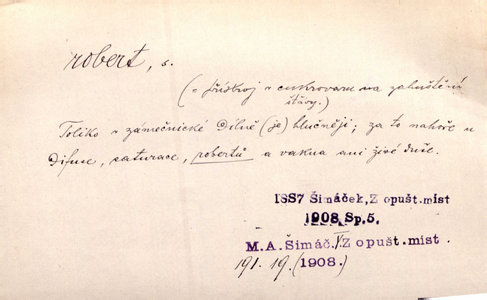 robert, s.
(= přístroj v cukrovaru na zahuštění
šťávy.)
Toliko v zámečnické dílně (je) hlučněji; za to nahoře u
difuse, saturace, robertů a vakua ani živé duše.
1887 Šimáček, Z opušt. míst
1908 Sp. 5.
M. A. Šimáč. Z opušt. míst.
191. 19. (1908.)